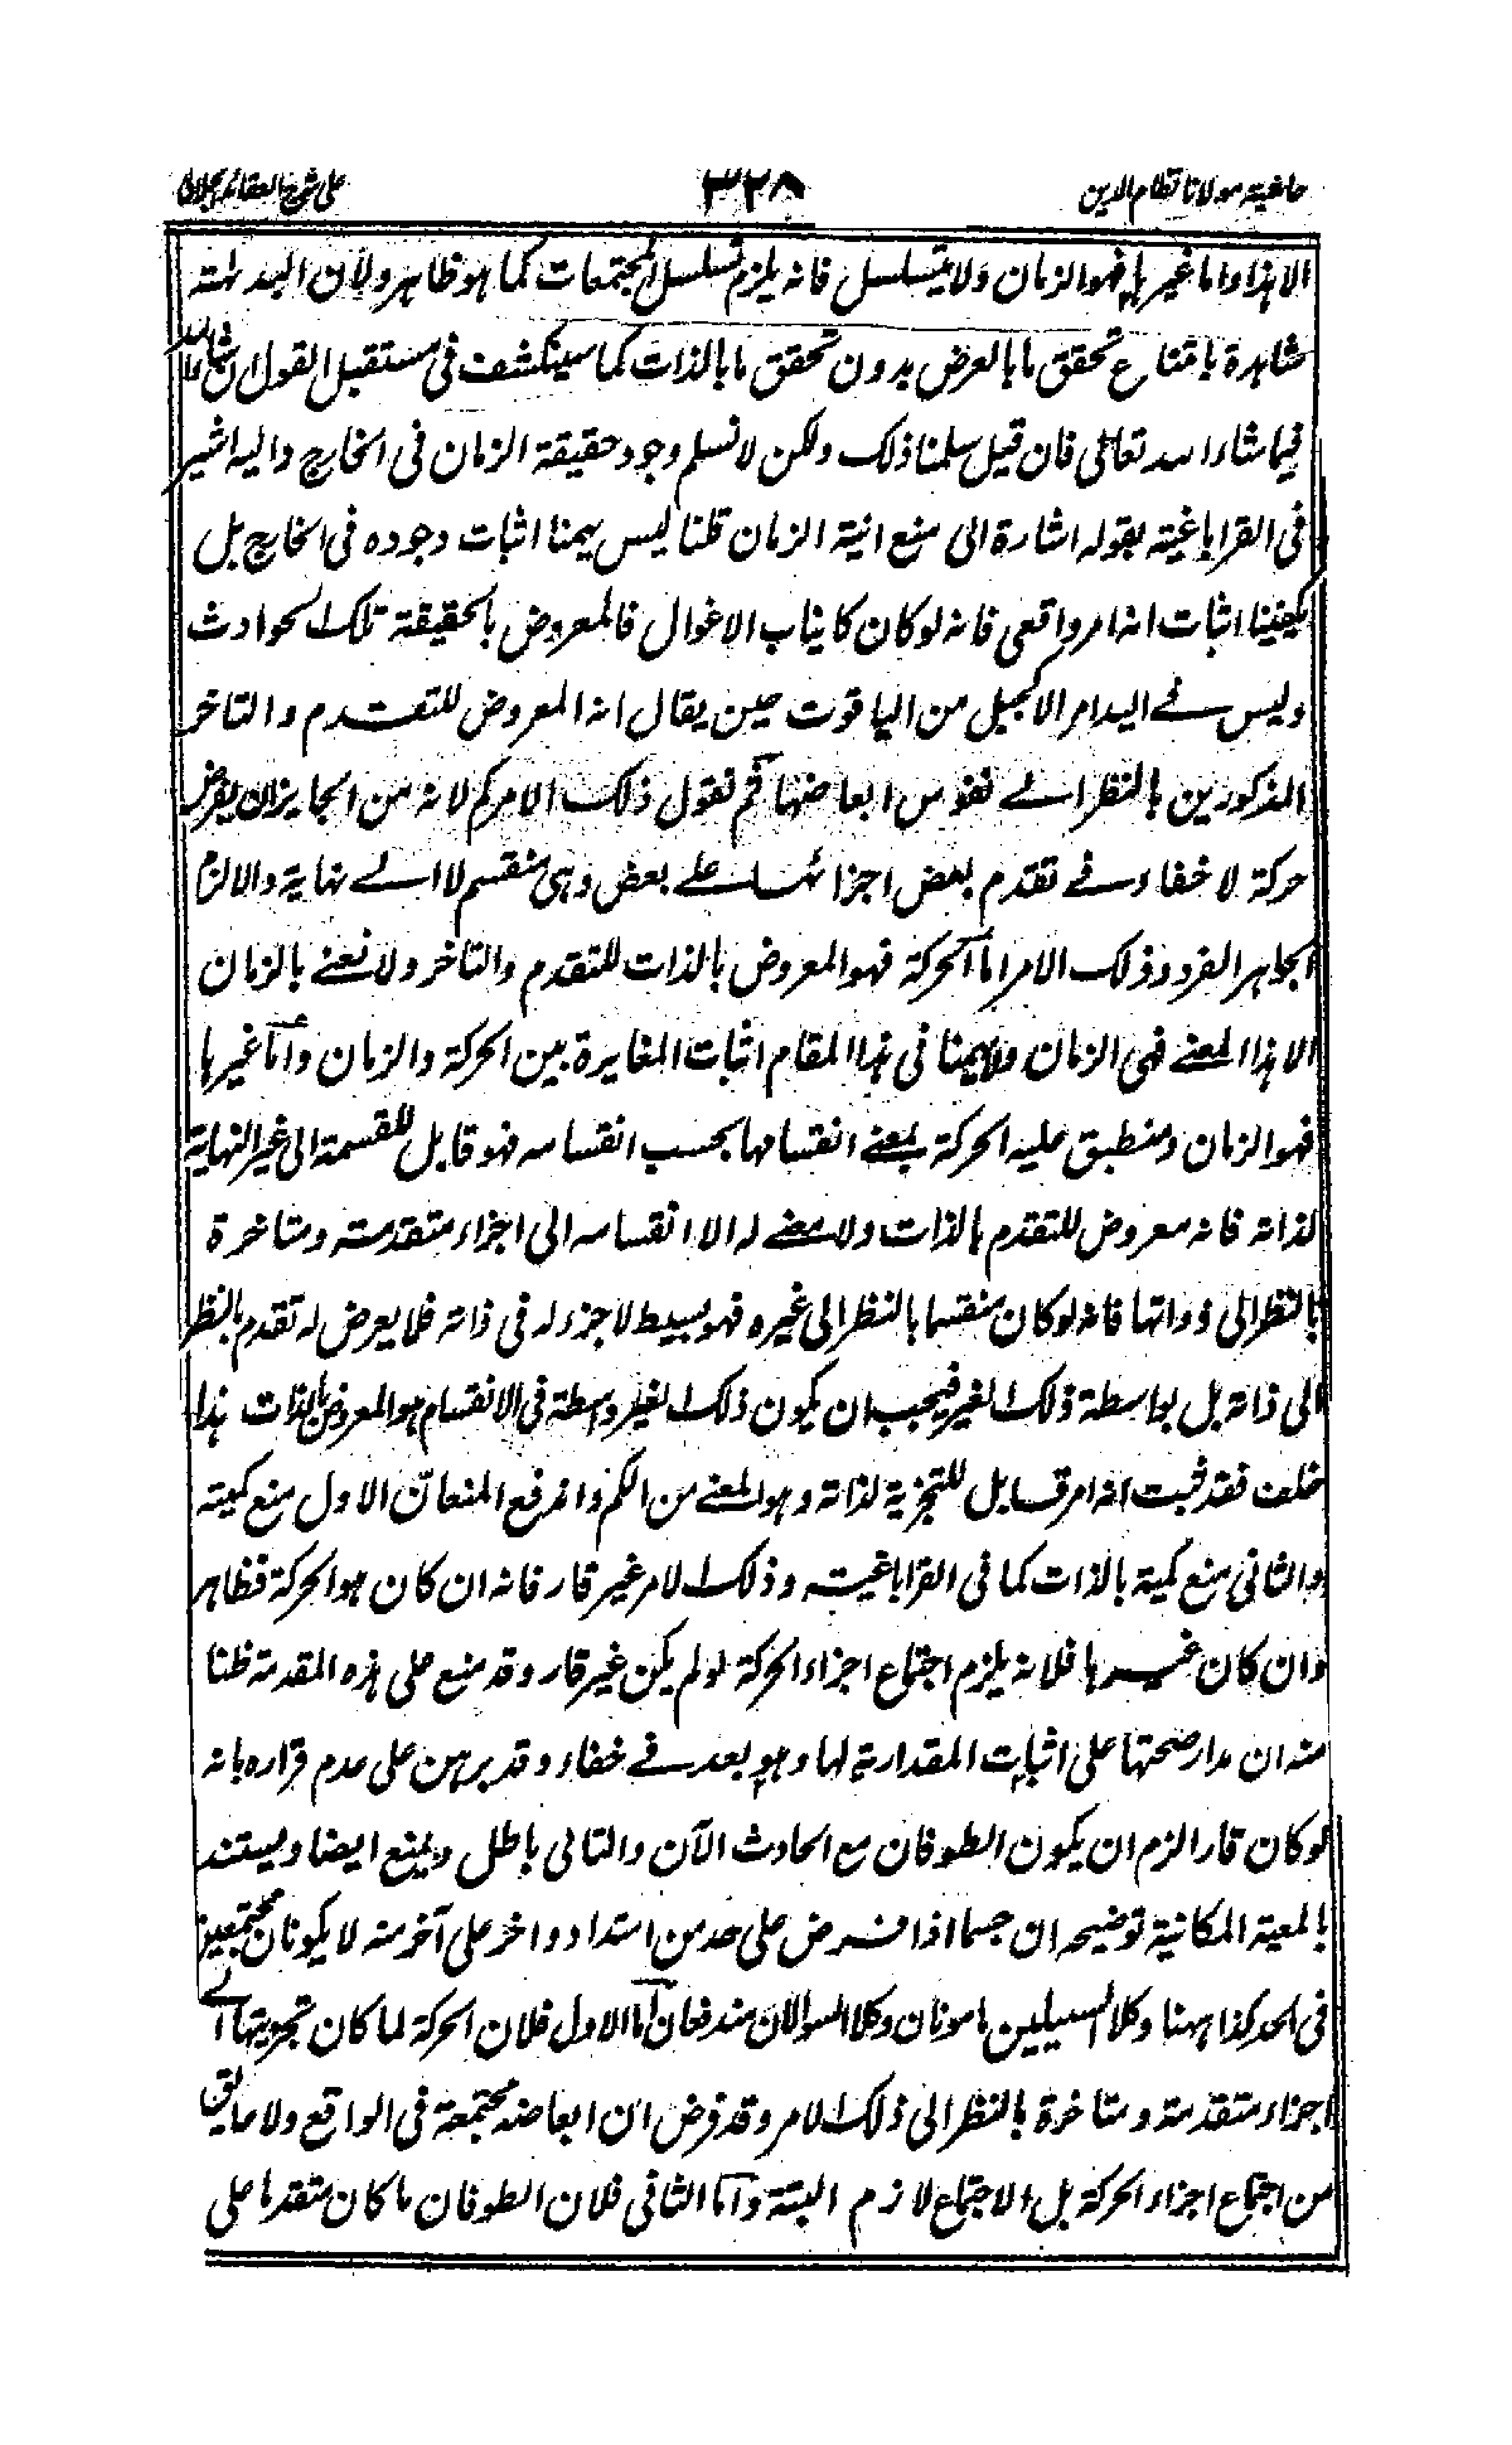 حاشیة مولانا نظام الدین
۳۲۸
علی شرح العقائد الجلالی
الا هذا واما غیرها فهو الزمان ولا یتسلسل فانه یلزم تسلسل المجتمعات کما هو ظاهر ولان البداهة
شاهدة بامتناع تحقق ما بالعرض بدون تحقق ما بالذات کما سینکشف فی مستقبل القول ان شاء الله
فیما شاء الله تعالی فان قیل سلمنا ذلک ولکن لا نسلم وجود حقیقة الزمان فی الخارج والیه اشیر
فی القراباغیة بقوله اشارة الی منع انیة الزمان قلنا لیس یهمنا اثبات وجوده فی الخارج بل
یکفینا اثبات انه امر واقعی فانه لو کان کانیاب الاغوال فالمعروض بالحقیقة تلک الحوادث
ولیس فے الید امر الا کجبل من الیاقوت حین یقال انه المعروض للتقدم والتاخر
المذکورین بالنظر الے نفوس ابعاضها ثم نقول ذلک الامر کم لانه من الجایز ان یفرض
حرکة لا خفاء فے تقدم بعض اجزائها علے بعض وهی منقسم لا الے نهایة والا لزم
الجواهر الفرد وذلک الامر اما الحرکة فهو المعروض بالذات للتقدم والتاخر ولا نعنے بالزمان
الا هذا المعنے فهی الزمان ولا یهمنا فی هذا المقام اثبات المغایرة بین الحرکة والزمان واما غیرها
فهو الزمان ومنطبق علیه الحرکة بمعنے انقسامها بحسب انقسامه فهو قابل للقسمة الی غیر النهایة
لذاته فانه معروض للتقدم بالذات ولا معنے له الا انقسامه الی اجزاء متقدمة ومتاخرة
بالنظر الی ذواتها فانه لو کان منقسما بالنظر الی غیره فهو بسیط لا جزء له فی ذاته فلا یعرض له تقدم بالنظر
الی ذاته بل بواسطة ذلک الغیر فیجب ان یکون ذلک الغیر واسطة فی الانقسام هو المعروض بالذات هذا
خلف فقد ثبت انه امر قابل للتجزیة لذاته وهو المعنے من الکم واندفع المنعان الاول منع کمیته
والثانی منع کمیة بالذات کما فی القراباغیة وذلک الامر غیر قار فانه ان کان هو الحرکة فظاهر
وان کان غیرها فلانه یلزم اجتماع اجزاء الحرکة لو لم یکن غیر قار وقد منع علی هذه المقدمة ظنا
منه ان مدار صحتها علی اثبات المقداریة لها وهو بعد فے خفاء وقد برهن علی عدم قراره بانه
لو کان قارا لزم ان یکون الطوفان مع الحادث الآن والتالی باطل ویمنع ایضا ویستند
بالمعیة المکانیة توضیحه ان جسما اذا فرض علی حد من امتداد واخر علی آخر منه لا یکونان مجتمعین
فی الحد کذا ههنا وکلا السبیلین مامونان وکلا السوالان مندفعان اما الاول فلان الحرکة لما کان تجزیتها الے
اجزاء متقدمة ومتاخرة بالنظر الی ذلک الامر وقد فرض ان ابعاضه مجتمعة فی الواقع ولا عایق
من اجتماع اجزاء الحرکة بل الاجتماع لازم البتة واما الثانی فلان الطوفان ما کان متقدما علی